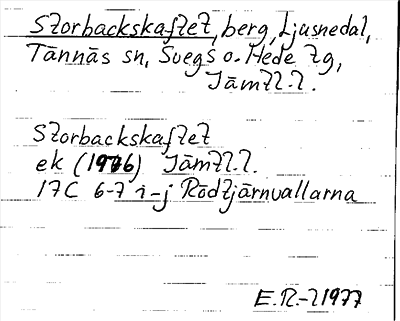 Storbackskaftet, berg, Ljusnedal,
Tännäs sn, Svegs o. Hede tg,
Jämtl. l.
Storbackskaftet
ek (1976) Jämtl. l.
17C 6-7 i-j Rödtjärnvallarna
E.R.-l 1977